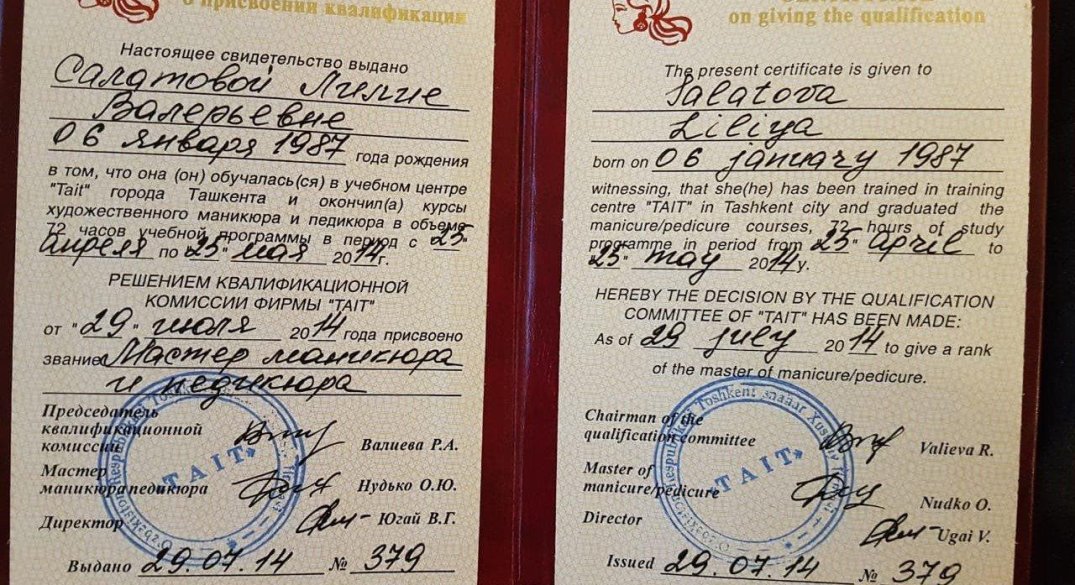 о присвоении квалификации
Настоящее свидетельство выдано
Салатовой Лилие
Валерьевне
06 января 1987 года рождения
в том, что она (он) обучалась(ся) в учебном центре
"Tait" города Ташкента и окончил(а) курсы
художественного маникюра и педикюра в объеме
72 часов учебной программы в период с "25"
апреля по "25" мая 2014г.
РЕШЕНИЕМ КВАЛИФИКАЦИОННОЙ
КОМИССИИ ФИРМЫ "ТАIТ"
от "29" июля 2014 года присвоено
звание Мастер маникюра
и педикюра
Председатель
квалификационной
комиссии Валиева Р.А.
Мастер
маникюра педикюра Нудько О.Ю.
Директор Югай В.Г.
Выдано 29.07.14 № 379
"TAIT"
on giving the qualification
The present certificate is given to
Salatova
Liliya
born on 06 january 1987
witnessing, that she(he) has been trained in training
centre "TAIT" in Tashkent city and graduated the
manicure/pedicure courses, 72 hours of study
programme in period from "25" april to
"25" may 2014y.
HEREBY THE DECISION BY THE QUALIFICATION
COMMITTEE OF "TAIT" HAS BEEN MADE:
As of 29 july 2014 to give a rank
of the master of manicure/pedicure.
Chairman of the
qualification committee Valieva R.
Master of
manicure/pedicure Nudko O.
Director Ugai V.
Issued 29.07.14 № 379
"TAIT"